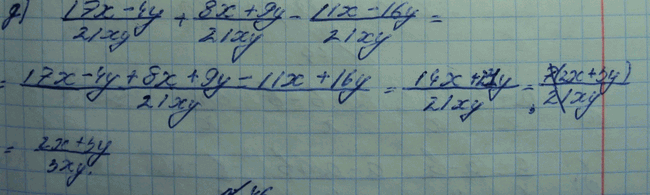 д) (17x-4y)/(21xy) + (8x+9y)/(21xy) - (11x-16y)/(21xy) =
= (17x-4y+8x+9y-11x+16y)/(21xy) = (14x+21y)/(21xy) = (7(2x+3y))/(21xy)
3
= (2x+3y)/(3xy).